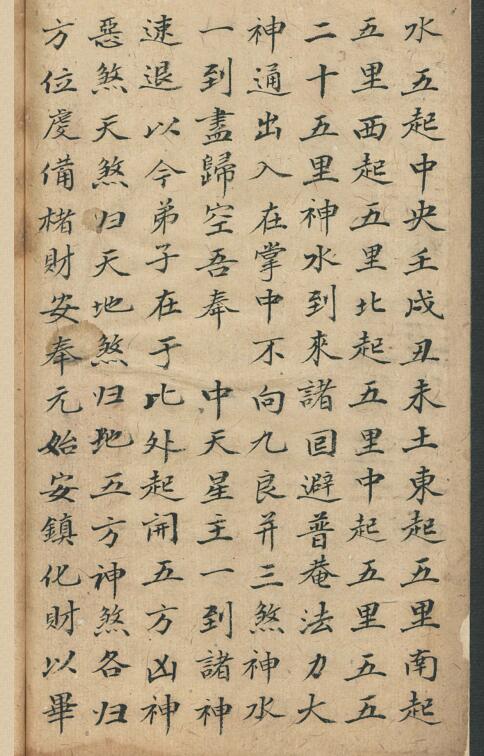 水五起中央壬戌丑未土東起五里南起
五里西起五里北起五里中起五里五五
二十五里神水到來諸回避普菴法力大
神通出入在掌中不向九良并三煞神水
一到盡歸空吾奉　中天星主一到諸神
速退以今弟子在于此外起開五方凶神
惡煞天煞归天地煞归地五方神煞各归
方位虔備楮財安奉元始安鎮化財以畢